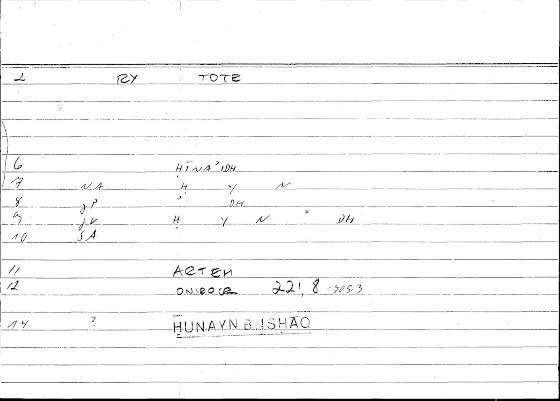 2 RY TOTE
6 ḤĪNA'IDH
7 NA Ḥ Y N
8 jP ' DH
9 jV Ḥ Y N ' DH
10 SA
11 ARTEM
12 ONIROCR 221,8 -905.3
14 ? ḤUNAYN B. ISḤAQ